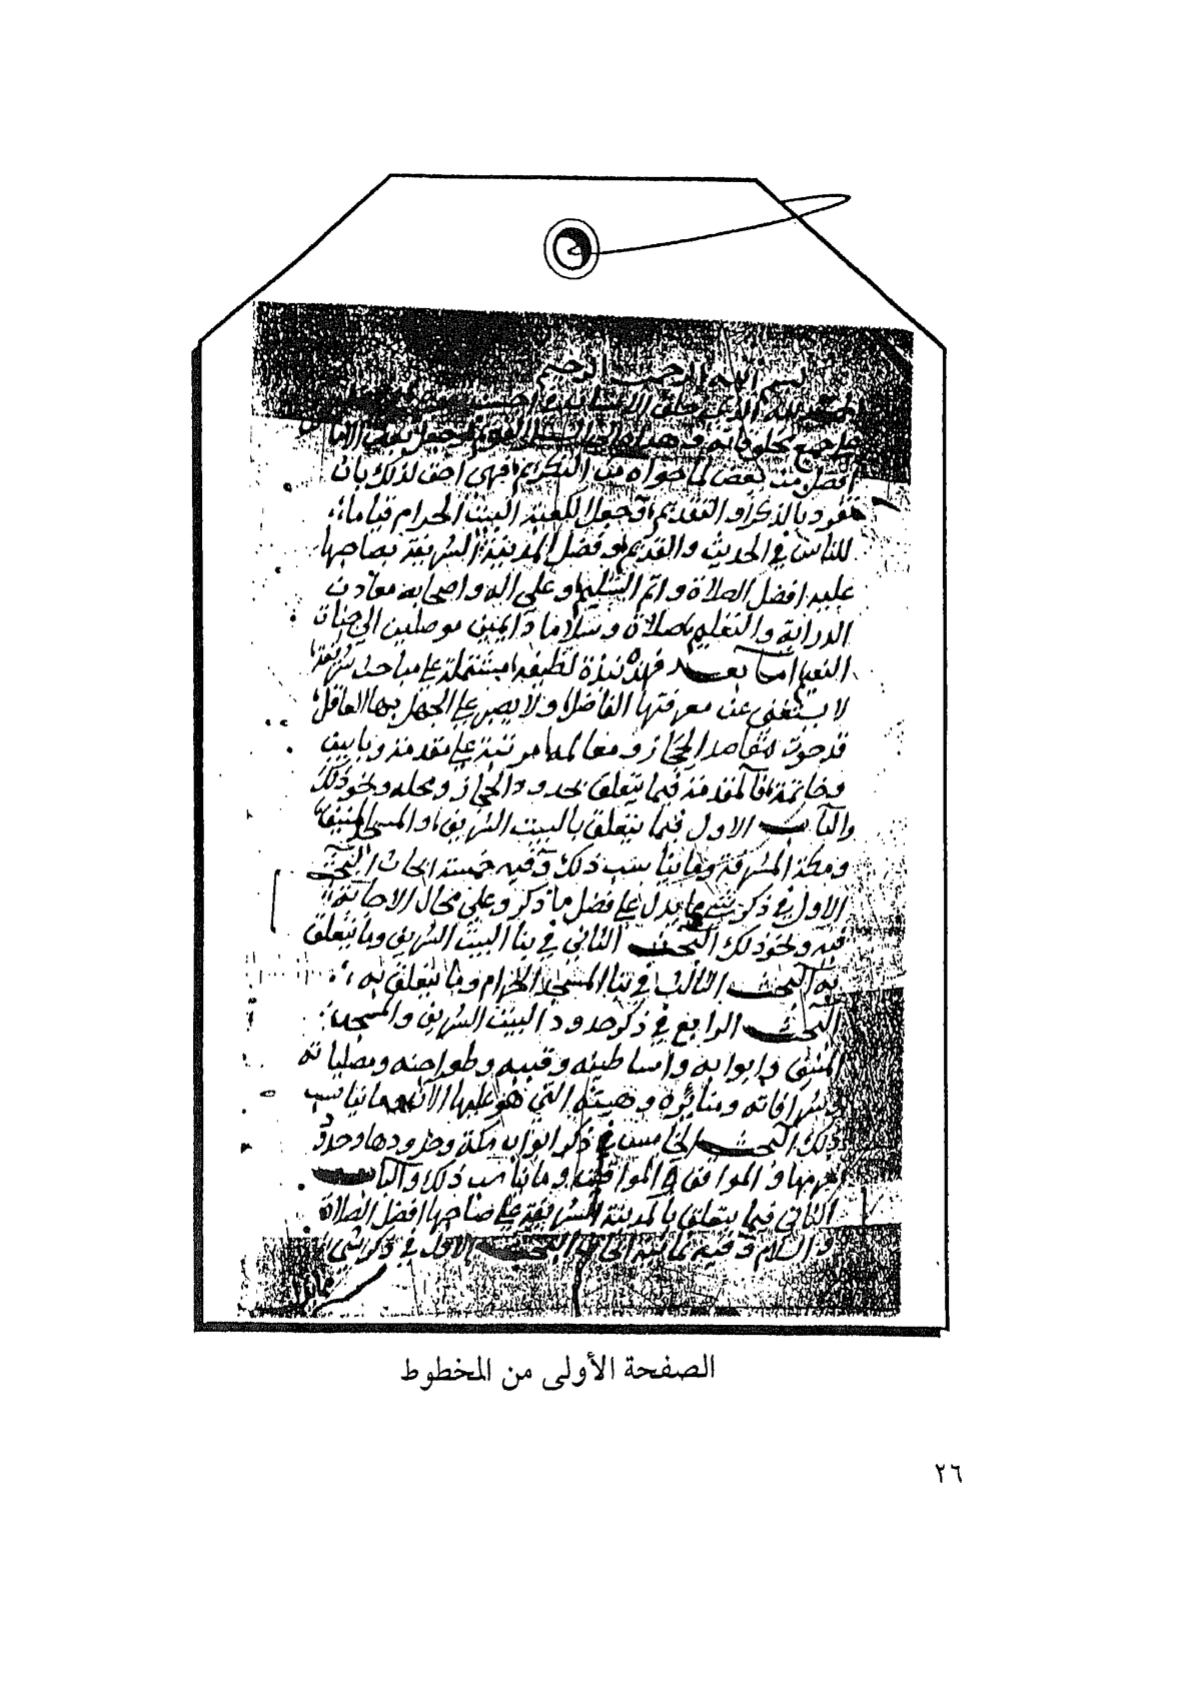 بسم الله الرحمن الرحيم
الحمد لله الذي خلق الانسان
على جميع مخلوقاته وجعل بعض الاماكن
افضل من بعض لما حواه من التكريم فهي احق لذلك بان
تفرد بالذكر او التقديم وجعل الكعبة البيت الحرام قياما
للناس في الحديث والقديم وفضل المدينة الشريفة بصاحبها
عليه افضل الصلاة واتم التسليم وعلى اله واصحابه معادن
الدراية والتعليم صلاة وسلاما دايمين موصلين الى جنات
النعيم اما بعد فهذه نبذة لطيفة مشتملة على مباحث شريفة
لا يستغنى عن معرفتها الفاضل ولا يصبر على الجهل بها العاقل
قد حوت مقاصد الحجاز ومعالمه مرتبة على مقدمة وبابين
وخاتمة فالمقدمة فيما يتعلق بحدود الحجاز ومحله ونحو ذلك
والباب الاول فيما يتعلق بالبيت الشريف والمسجد المنيف
ومكة المشرفة وما يناسب ذلك وفيه خمسة ابحاث البحث
الاول في ذكر شيء مما يدل على فضل ما ذكر وعلى محال الاجابة
فيه ونحو ذلك البحث الثاني في بنا البيت الشريف وما يتعلق
به البحث الثالث في بنا المسجد الحرام وما يتعلق به
البحث الرابع في ذكر حدود البيت الشريف والمسجد
المنيف وابوابه واساطينه وقببه وطواجنه ومصلياته
وشرافاته ومنائره وهيئته التي هو عليها الآن وما يناسب
ذلك البحث الخامس في ذكر ابواب مكة وحدودها وحدود
حرمها و المواقيت وما يناسب ذلك والباب
الثاني فيما يتعلق بالمدينة الشريفة على صاحبها افضل الصلاة
والسلام وفيه ثمانية ابحاث البحث الاول في ذكر شي
الصفحة الأولى من المخطوط
٢٦